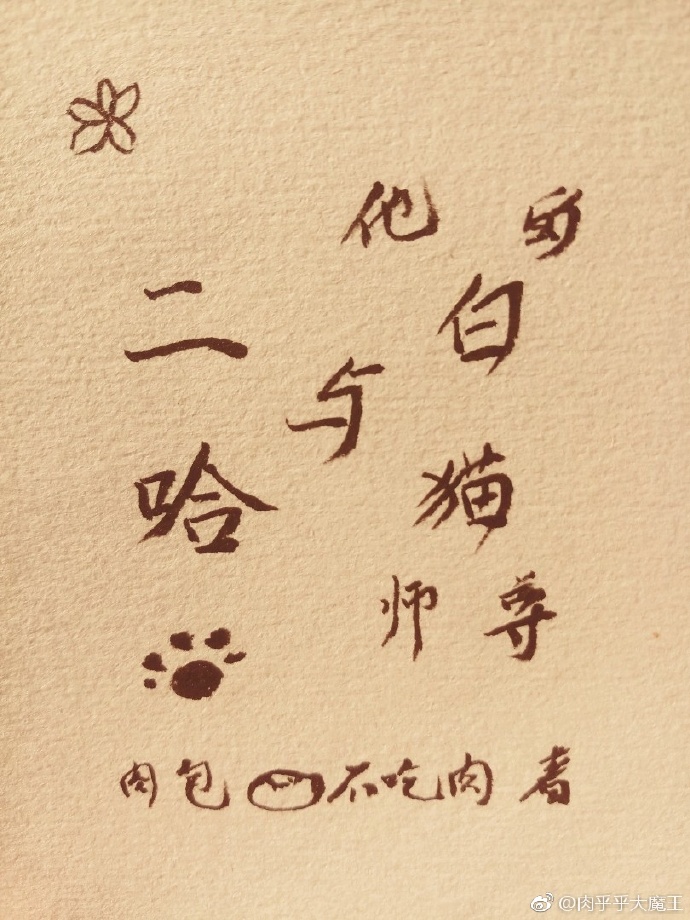 二哈
与
他的
白猫
师尊
肉包不吃肉 著
@肉乎乎大魔王